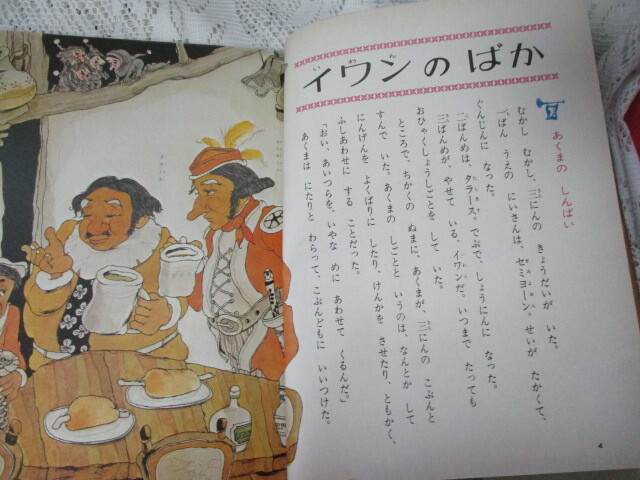 イワンのばか
あくまの しんぱい
むかし むかし、三にんの きょうだいが いた。
一ばん うえの にいさんは、セミョーン。せいが たかくて、
ぐんじんに なった。
二ばんめは、タラース。でぶで、しょうにんに なった。
三ばんめが、やせて いる、イワンだ。いつまで たっても
おひゃくしょうしごとを して いた。
ところで、ちかくの ぬまに、あくまが、三にんの こぶんと
すんで いた。あくまの しごとと いうのは、なんとか して
にんげんを よくばりに したり、けんかを させたり、ともかく、
ふしあわせに する ことだった。
「おい、あいつらを、いやな めに あわせて くるんだ。」
あくまは にたりと わらって、こぶんどもに いいつけた。
4